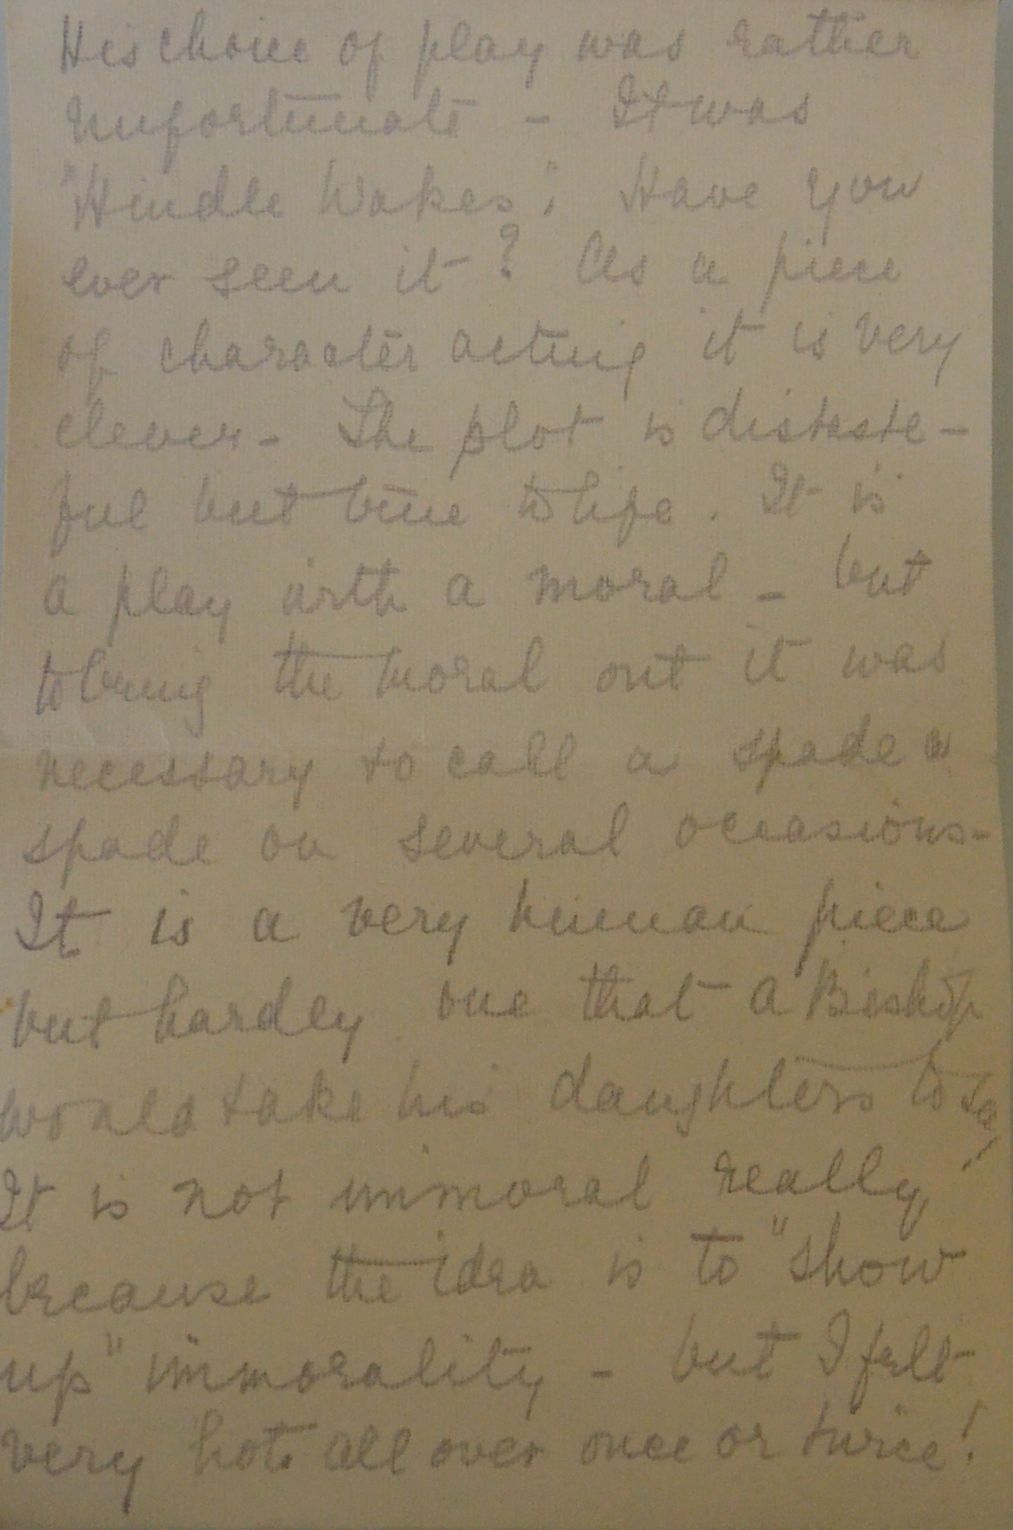 His choice of play was rather
unfortunate - It was
"Hindle Wakes". Have you
ever seen it? As a piece
of character acting it is very
clever - The plot is distaste-
ful but true to life. It is
a play with a moral - but
to bring the moral out it was
necessary to call a spade a
spade on several occasions -
It is a very human piece
but hardly one that a Bishop
would take his daughters to
It is not immoral really,
because the idea is to "show
up" immorality - but I felt
very hot all over once or twice!